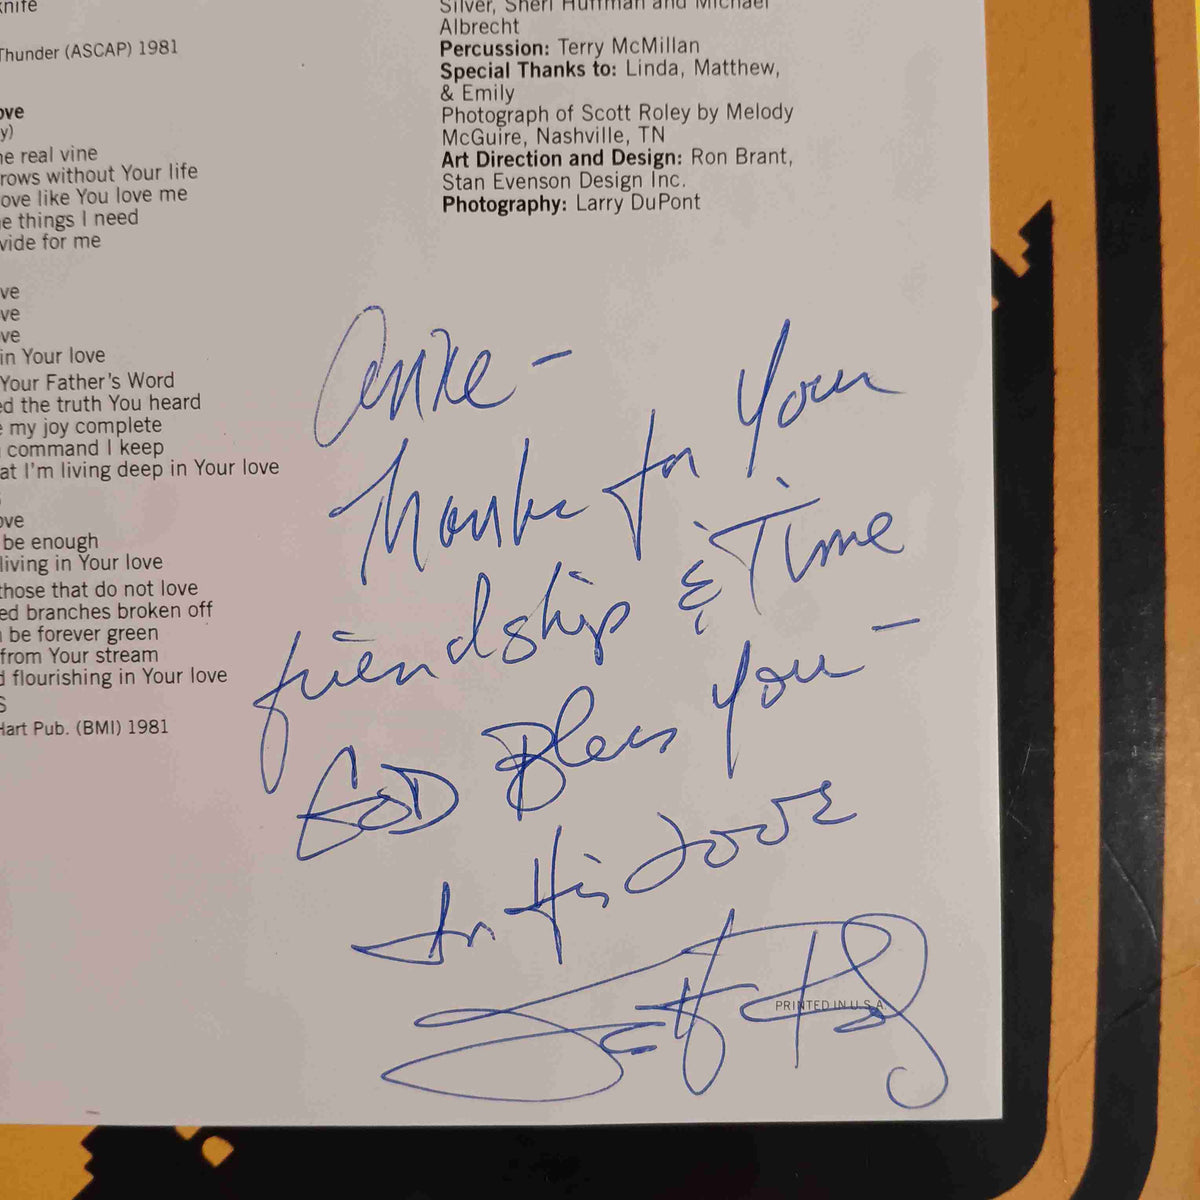 knife
Thunder (ASCAP) 1981
ove
y)
he real vine
rows without Your life
ove like You love me
e things I need
vide for me
ve
ve
ve
in Your love
Your Father's Word
ed the truth You heard
e my joy complete
command I keep
at I'm living deep in Your love
ove
be enough
living in Your love
those that do not love
ed branches broken off
be forever green
from Your stream
d flourishing in Your love
S
Hart Pub. (BMI) 1981
Silver, Sheri Huffman and Michael
Albrecht
Percussion: Terry McMillan
Special Thanks to: Linda, Matthew,
& Emily
Photograph of Scott Roley by Melody
McGuire, Nashville, TN
Art Direction and Design: Ron Brant,
Stan Evenson Design Inc.
Photography: Larry DuPont
Anke -
Thanks for your
friendship & Time
GOD Bless you -
In His Love
Scott Roley
PRINTED IN U.S.A.